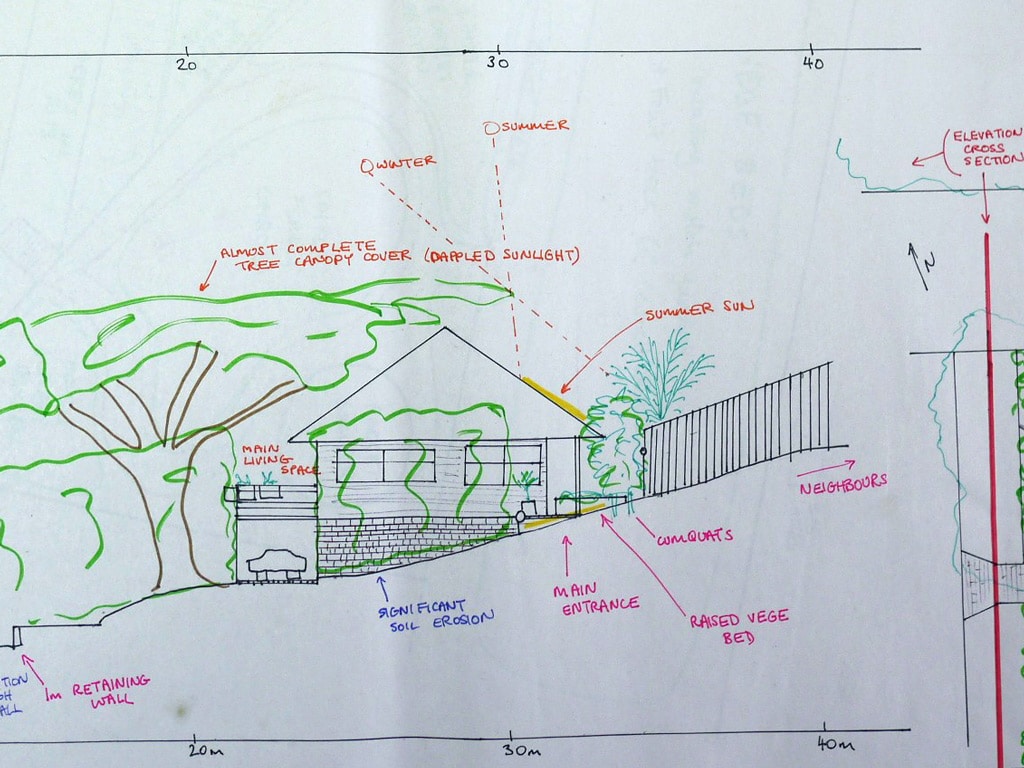 20
30
40
SUMMER
WINTER
ELEVATION
CROSS
SECTION
ALMOST COMPLETE
TREE CANOPY COVER (DAPPLED SUNLIGHT)
N
SUMMER SUN
MAIN
LIVING
SPACE
NEIGHBOURS
CUMQUATS
MAIN
ENTRANCE
SIGNIFICANT
SOIL EROSION
RAISED VEGE
BED
1m RETAINING
WALL
20m
30m
40m